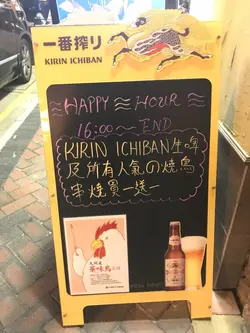 一番搾り
KIRIN ICHIBAN
HAPPY HOUR
16:00～END
KIRIN ICHIBAN生啤
及所有人氣の燒鳥
串燒買一送一